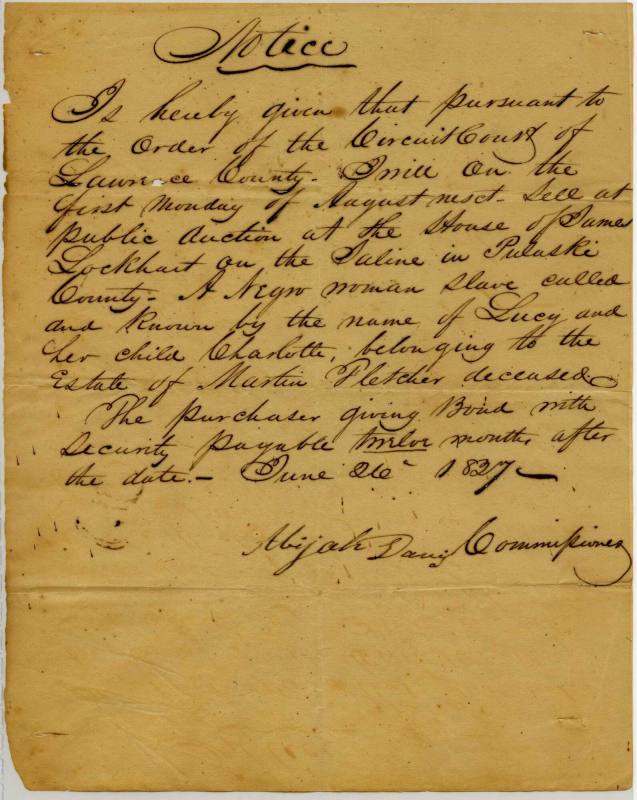 Notice
Is hereby given that pursuant to
the Order of the Circuit Court of
Lawrence County - I will On the
first Monday of August next - Sell at
public Auction at the House of James
Lockhart on the Saline in Pulaski
County - A Negro woman slave called
and known by the name of Lucy and
her child Charlotte, belonging to the
Estate of Martin Fletcher deceased
The purchaser giving Bond with
Security payable twelve months after
the date. - June 26 1827 -
Abijah Davis Commissioner